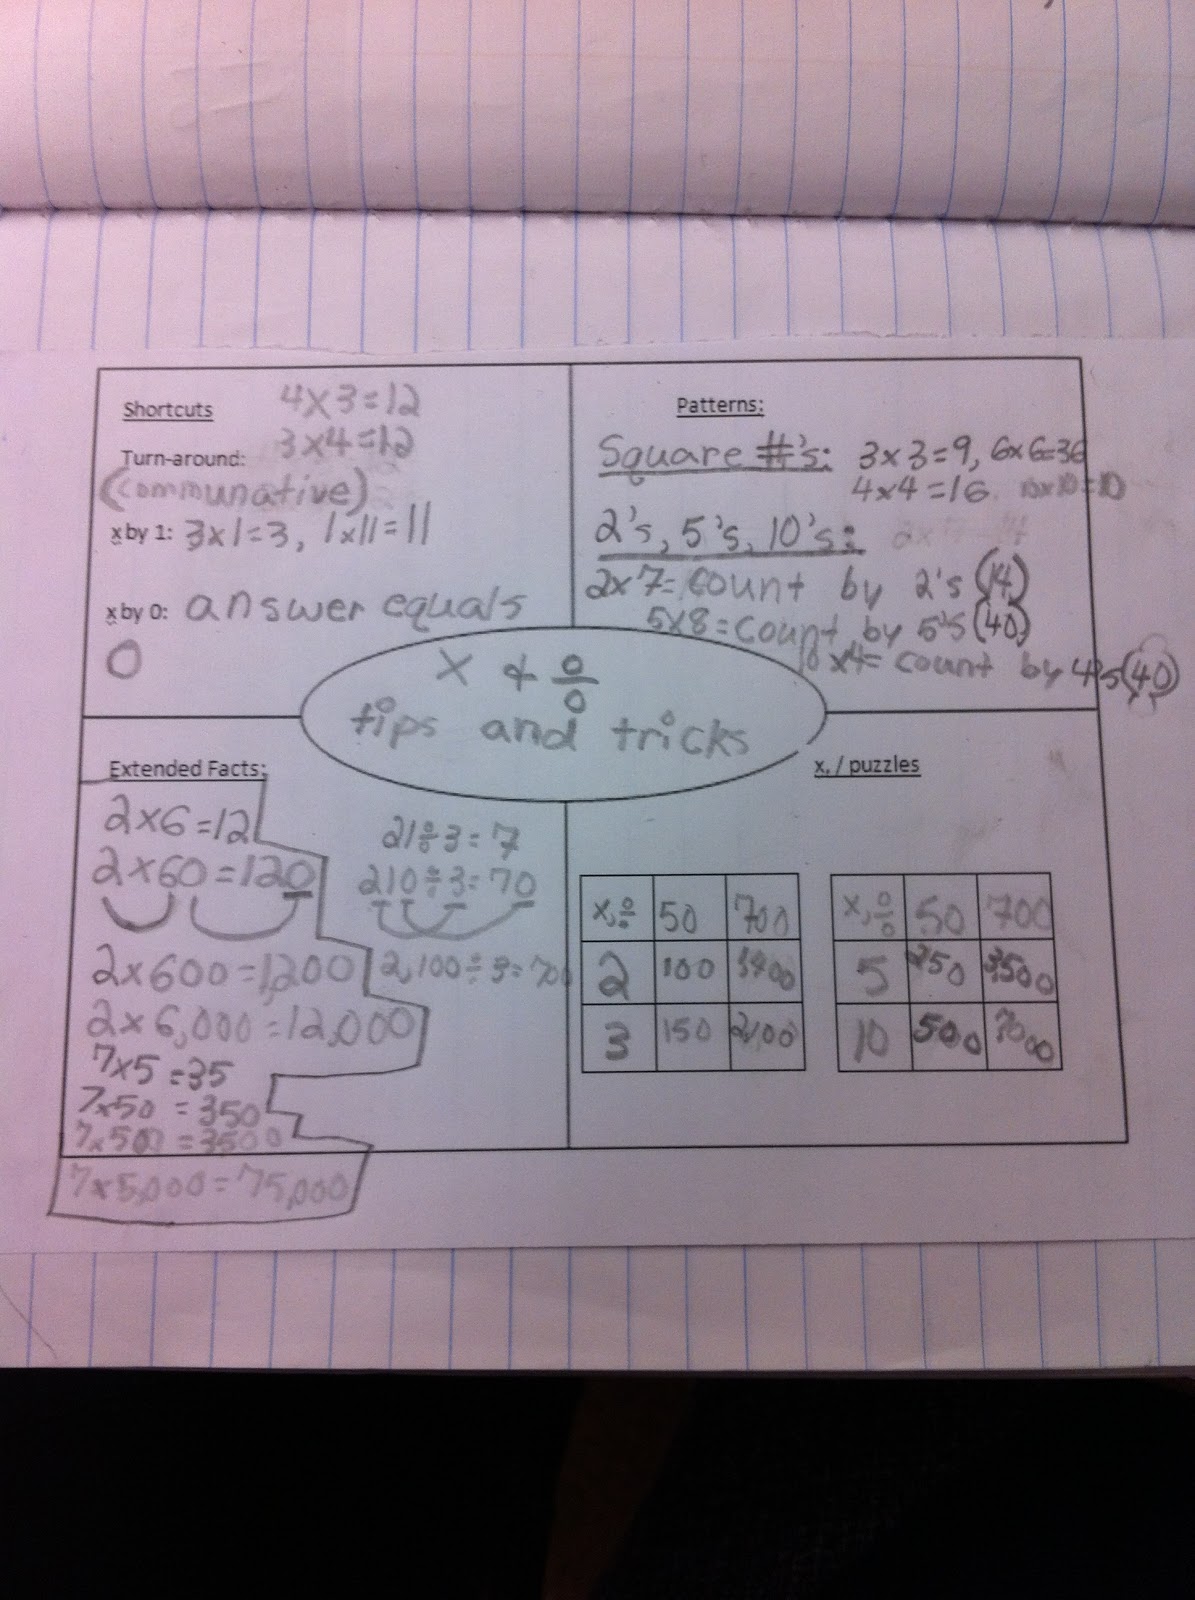 Shortcuts 4x3=12
Turn-around: 3x4=12
(communative)
x by 1: 3x1=3, 1x11=11
x by 0: answer equals
0
Patterns:
Square #'s: 3x3=9, 6x6=36
4x4=16 10x10=10
2's, 5's, 10's:
2x7=count by 2's (14)
5x8=count by 5's (40)
10x4= count by (40)
x & ÷
tips and tricks
Extended Facts:
2x6=12
2x60=120
2x600=1,200
2x6,000=12,000
7x5=35
7x50=350
7x500=3500
7x5,000=75,000
21÷3=7
210÷3=70
2,100÷3=700
x, / puzzles
x,÷ 50 700
2 100
3 150 2,100
x,÷ 50 700
5 250 3500
10 500 7000